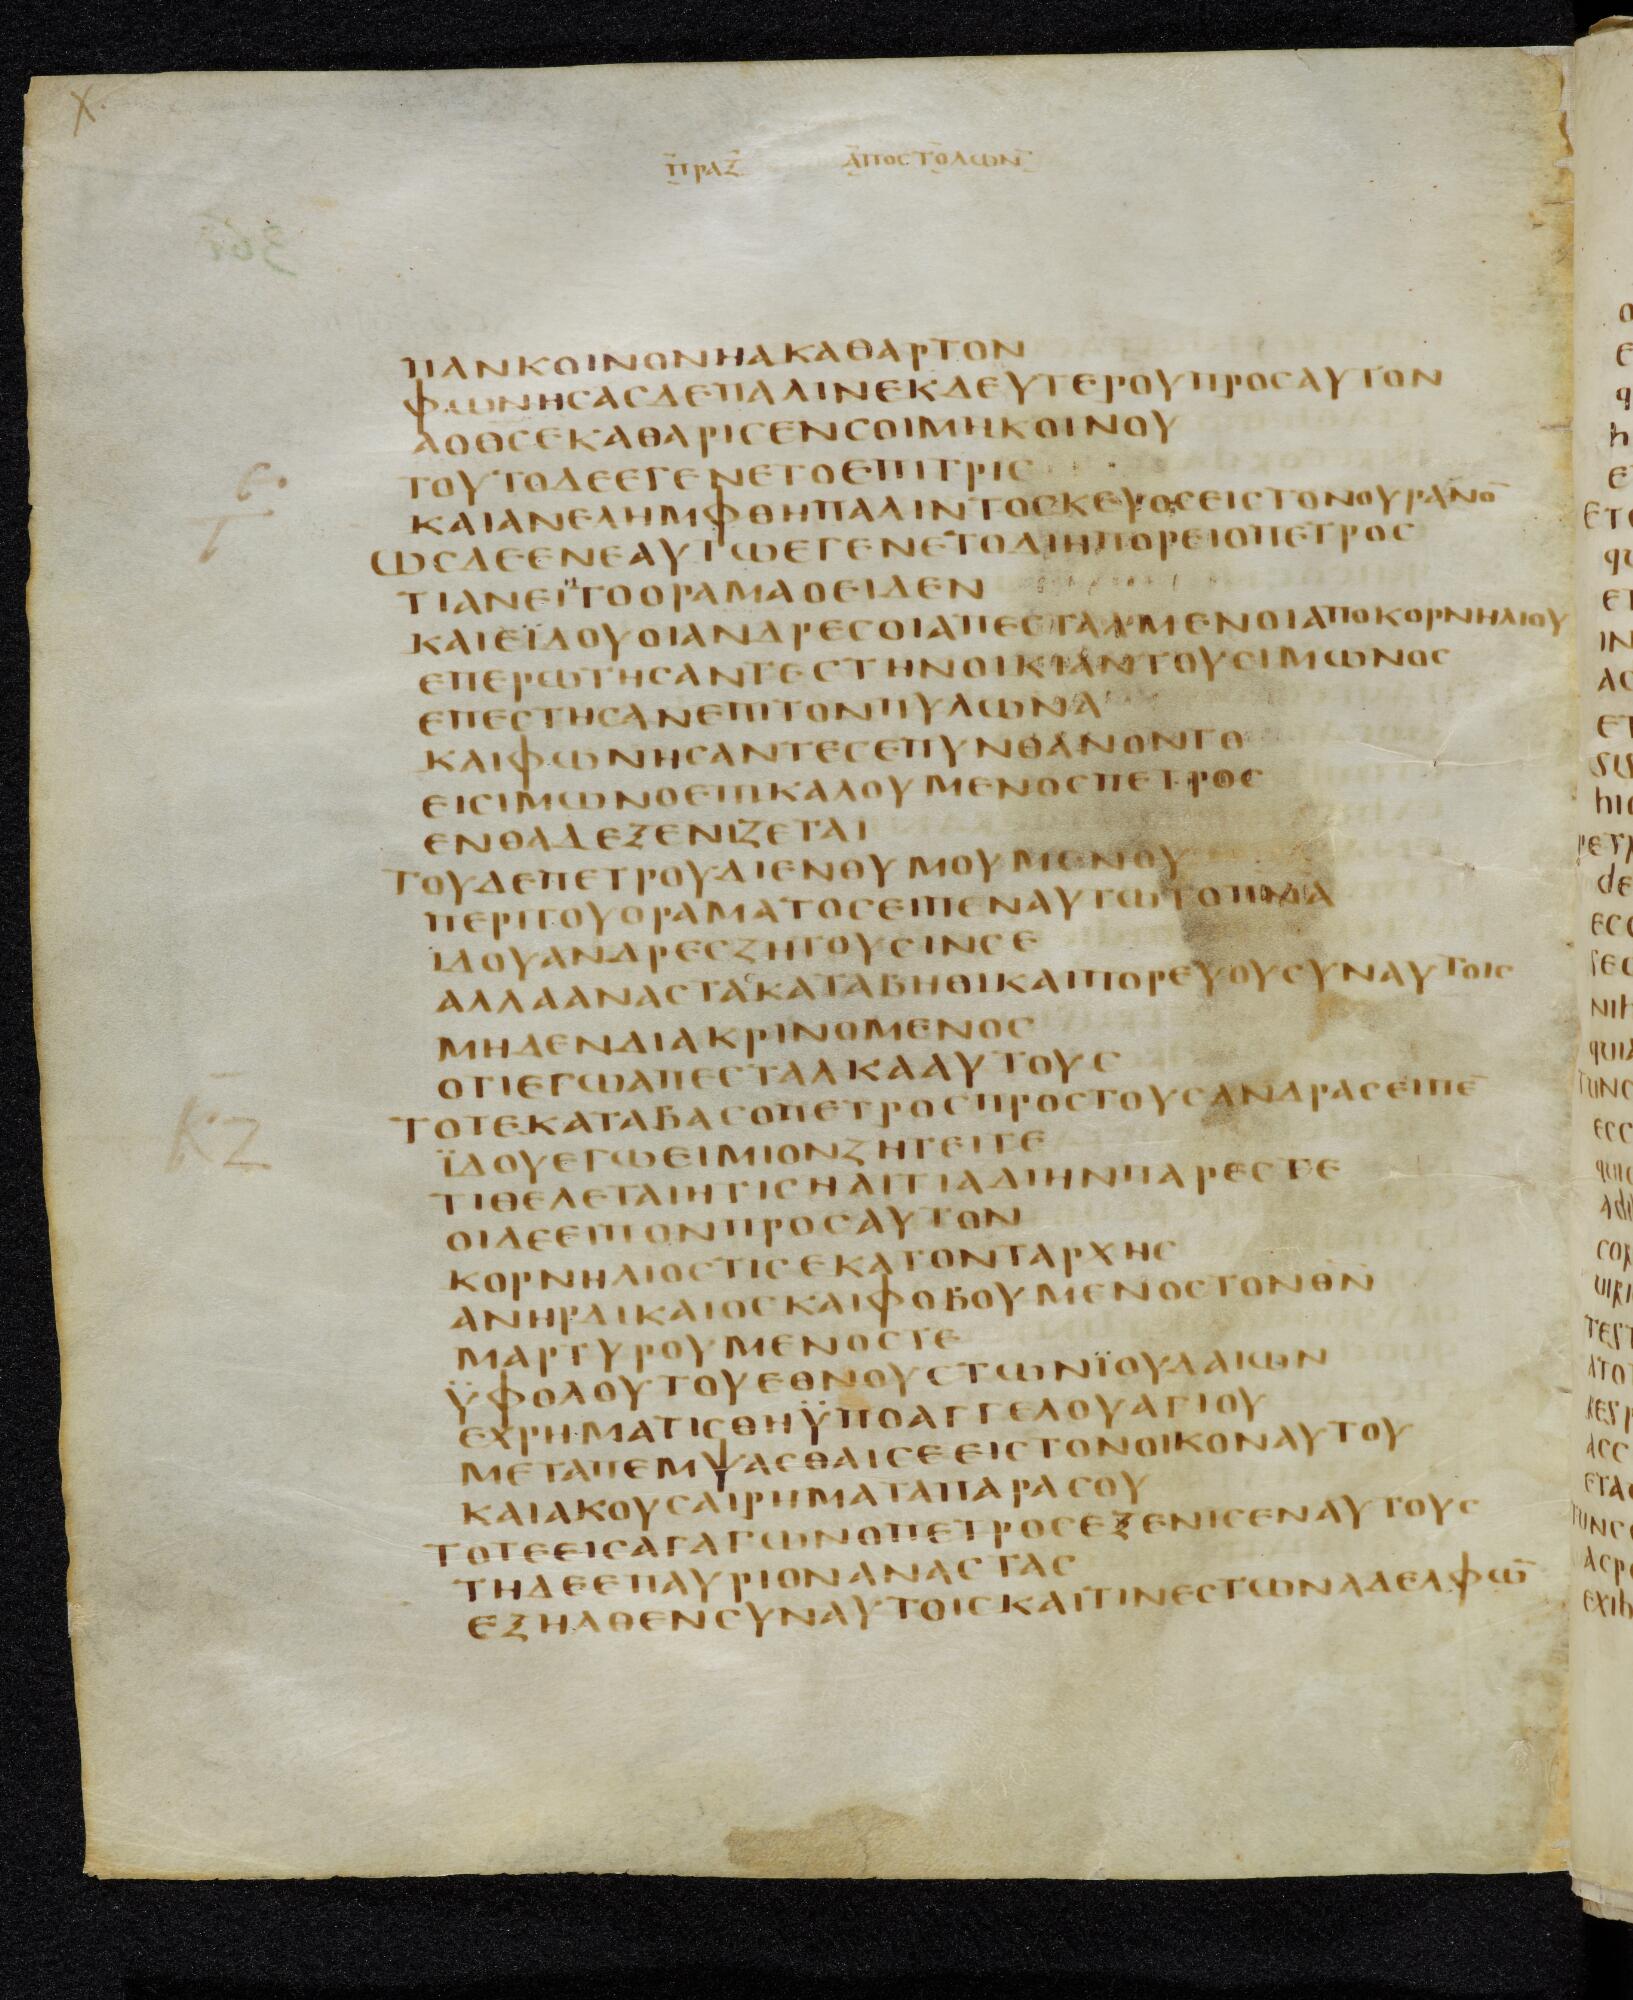 Χ·
ΠΡΑΞ ΑΠΟΣΤΟΛΩΝ
ΠΑΝΚΟΙΝΟΝΗΑΚΑΘΑΡΤΟΝ
ΦΩΝΗϹΑϹΔΕΠΑΛΙΝΕΚΔΕΥΤΕΡΟΥΠΡΟϹΑΥΤΟΝ
ΑΟΘϹΕΚΑΘΑΡΙϹΕΝϹΟΙΜΗΚΟΙΝΟΥ
ΤΟΥΤΟΔΕΕΓΕΝΕΤΟΕΠΙΤΡΙϹ
ΚΑΙΑΝΕΛΗΜΦΘΗΠΑΛΙΝΤΟϹΚΕΥΟϹΕΙϹΤΟΝΟΥΡΑΝΟ̅
ΩϹΔΕΕΝΕΑΥΤΩΕΓΕΝΕΤΟΔΙΗΠΟΡΕΙΟΠΕΤΡΟϹ
ΤΙΑΝΕΙΗΤΟΟΡΑΜΑΟΕΙΔΕΝ
ΚΑΙΕΪΔΟΥΟΙΑΝΔΡΕϹΟΙΑΠΕϹΤΑΛΜΕΝΟΙΑΠΟΚΟΡΝΗΛΙΟΥ
ΕΠΕΡΩΤΗϹΑΝΤΕϹΤΗΝΟΙΚΙΑΝΤΟΥϹΙΜΩΝΟϹ
ΕΠΕϹΤΗϹΑΝΕΠΙΤΟΝΠΥΛΩΝΑ
ΚΑΙΦΩΝΗϹΑΝΤΕϹΕΠΥΝΘΑΝΟΝΤΟ
ΕΙϹΙΜΩΝΟΕΠΙΚΑΛΟΥΜΕΝΟϹΠΕΤΡΟϹ
ΕΝΘΑΔΕΞΕΝΙΖΕΤΑΙ
ΤΟΥΔΕΠΕΤΡΟΥΔΙΕΝΘΥΜΟΥΜΕΝΟΥ
ΠΕΡΙΤΟΥΟΡΑΜΑΤΟϹΕΙΠΕΝΑΥΤΩΤΟΠΝΑ
ΙΔΟΥΑΝΔΡΕϹΖΗΤΟΥϹΙΝϹΕ
ΑΛΛΑΑΝΑϹΤΑϹΚΑΤΑΒΗΘΙΚΑΙΠΟΡΕΥΟΥϹΥΝΑΥΤΟΙϹ
ΜΗΔΕΝΔΙΑΚΡΙΝΟΜΕΝΟϹ
ΟΤΙΕΓΩΑΠΕϹΤΑΛΚΑΑΥΤΟΥϹ
ΚΖ
ΤΟΤΕΚΑΤΑΒΑϹΟΠΕΤΡΟϹΠΡΟϹΤΟΥϹΑΝΔΡΑϹΕΙΠΕ̅
ΪΔΟΥΕΓΩΕΙΜΙΟΝΖΗΤΕΙΤΕ
ΤΙΘΕΛΕΤΑΙΗΤΙϹΗΑΙΤΙΑΔΙΗΝΠΑΡΕϹΤΕ
ΟΙΔΕΕΙΠΟΝΠΡΟϹΑΥΤΟΝ
ΚΟΡΝΗΛΙΟϹΤΙϹΕΚΑΤΟΝΤΑΡΧΗϹ
ΑΝΗΡΔΙΚΑΙΟϹΚΑΙΦΟΒΟΥΜΕΝΟϹΤΟΝΘΝ
ΜΑΡΤΥΡΟΥΜΕΝΟϹΤΕ
ΫΦΟΛΟΥΤΟΥΕΘΝΟΥϹΤΩΝΪΟΥΔΑΙΩΝ
ΕΧΡΗΜΑΤΙϹΘΗΫΠΟΑΓΓΕΛΟΥΑΓΙΟΥ
ΜΕΤΑΠΕΜΨΑϹΘΑΙϹΕΕΙϹΤΟΝΟΙΚΟΝΑΥΤΟΥ
ΚΑΙΑΚΟΥϹΑΙΡΗΜΑΤΑΠΑΡΑϹΟΥ
ΤΟΤΕΕΙϹΑΓΑΓΩΝΟΠΕΤΡΟϹΕΞΕΝΙϹΕΝΑΥΤΟΥϹ
ΤΗΔΕΕΠΑΥΡΙΟΝΑΝΑϹΤΑϹ
ΕΞΗΛΘΕΝϹΥΝΑΥΤΟΙϹΚΑΙΤΙΝΕϹΤΩΝΑΔΕΛΦΩ̅